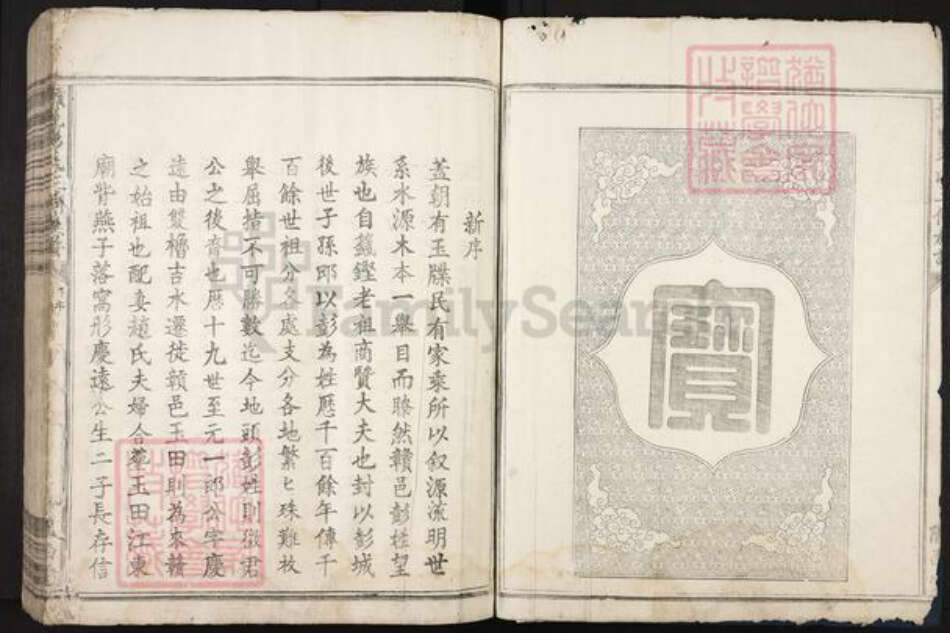 寶
新序
蓋朝有玉牒民有家乘所以叙源流明世
系水源木本一舉目而瞭然贛邑彭姓望
族也自籛鏗老祖商賢大夫也封以彭城
後世子孫即以彭為姓歷千百餘年傳千
百餘世祖分各處支分各地繁匕殊難枚
舉屈指不可勝數迄今地頭彭姓則徵君
公之後裔也歷十九世至元一郎公字慶
遠由雙櫓吉水遷徙贛邑玉田則為來贛
之始祖也配妻趙氏夫婦合塟玉田江東
廟背燕子落窩形慶遠公生二子長存信
FamilySearch